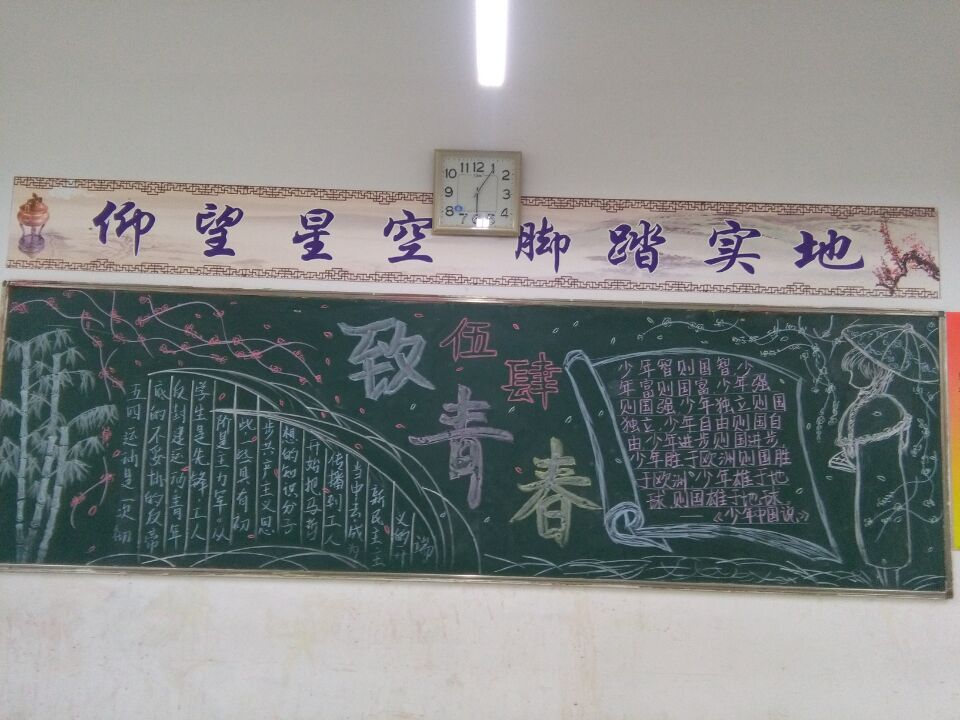 11 12 1
10 2
9 3
8 4
7 6 5
仰望星空 脚踏实地
致
伍
肆
青
春
五四运动是一次彻
底的不妥协的反帝
反封建运动青年
学生是先锋工人
阶是主力军。从
此,一些具有初
步共产主义思
想的知识分子
开始把马
传播到工人
当中去成为
新民主主
义的开
端
少年智则国智,少
年富则国富,少年强
则国强,少年独立则国
独立,少年自由则国自
由,少年进步则国进步,
少年胜于欧洲则国胜
于欧洲。少年雄于地
球则国雄于地球。
《少年中国说》